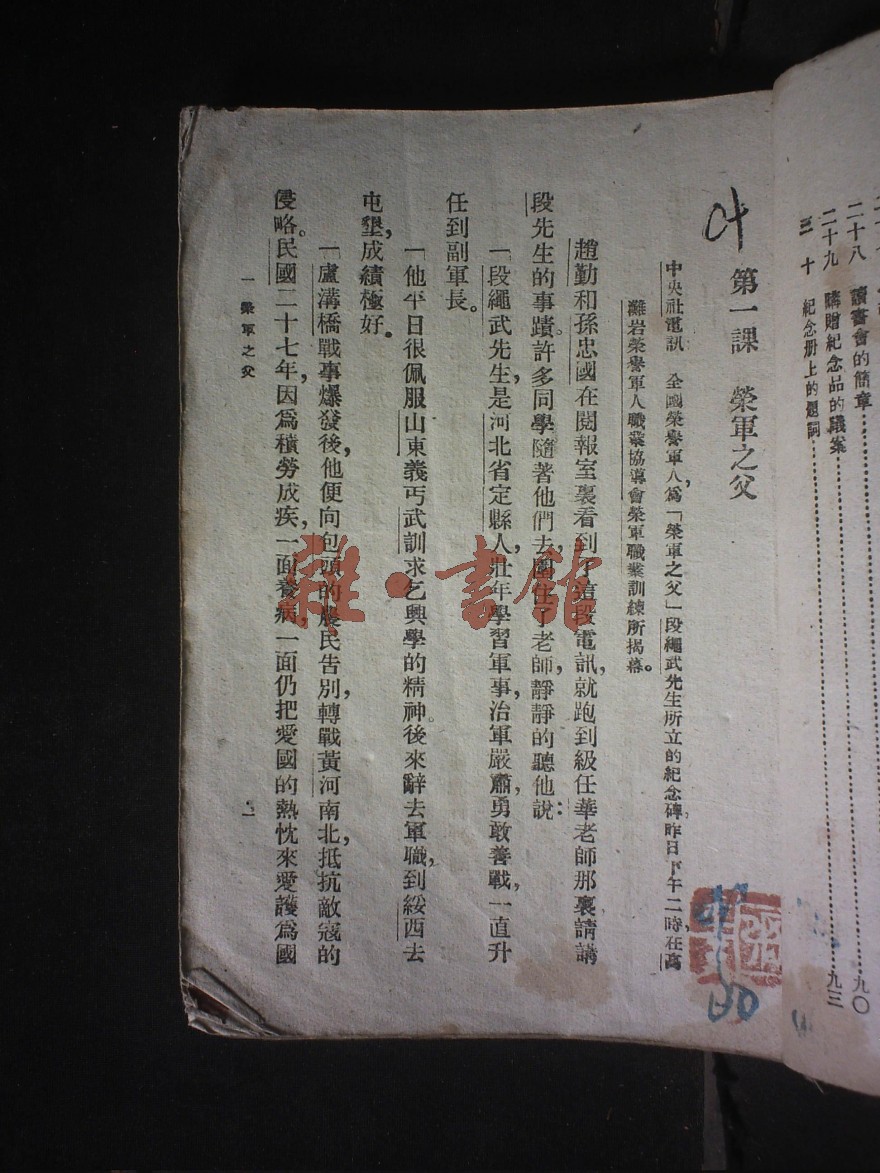 二十八 讀書會的簡章……九〇
二十九 購贈紀念品的議案……九三
三十 紀念册上的題詞
第一課 榮軍之父
中央社電訊 全國榮譽軍人,爲「榮軍之父」段繩武先生所立的紀念碑,昨日下午二時,在高
灘岩榮譽軍人職業協導會榮軍職業訓練所揭幕。
趙勤和孫忠國在閱報室裏看到了這段電訊,就跑到級任華老師那裏,請講
段先生的事蹟。許多同學隨著他們去,圍住了老師,靜靜的聽他說:
「段繩武先生,是河北省定縣人,壯年學習軍事,治軍嚴肅,勇敢善戰,一直升
任到副軍長。
「他平日很佩服山東義丐武訓求乞興學的精神。後來辭去軍職,到綏西去
屯墾,成績極好。
「盧溝橋戰事爆發後,他便向包頭的農民告別,轉戰黃河南北,抵抗敵寇的
侵略。民國二十七年,因爲積勞成疾,一面養病,一面仍把愛國的熱忱來愛護爲國
一 榮軍之父
一
雜·書館